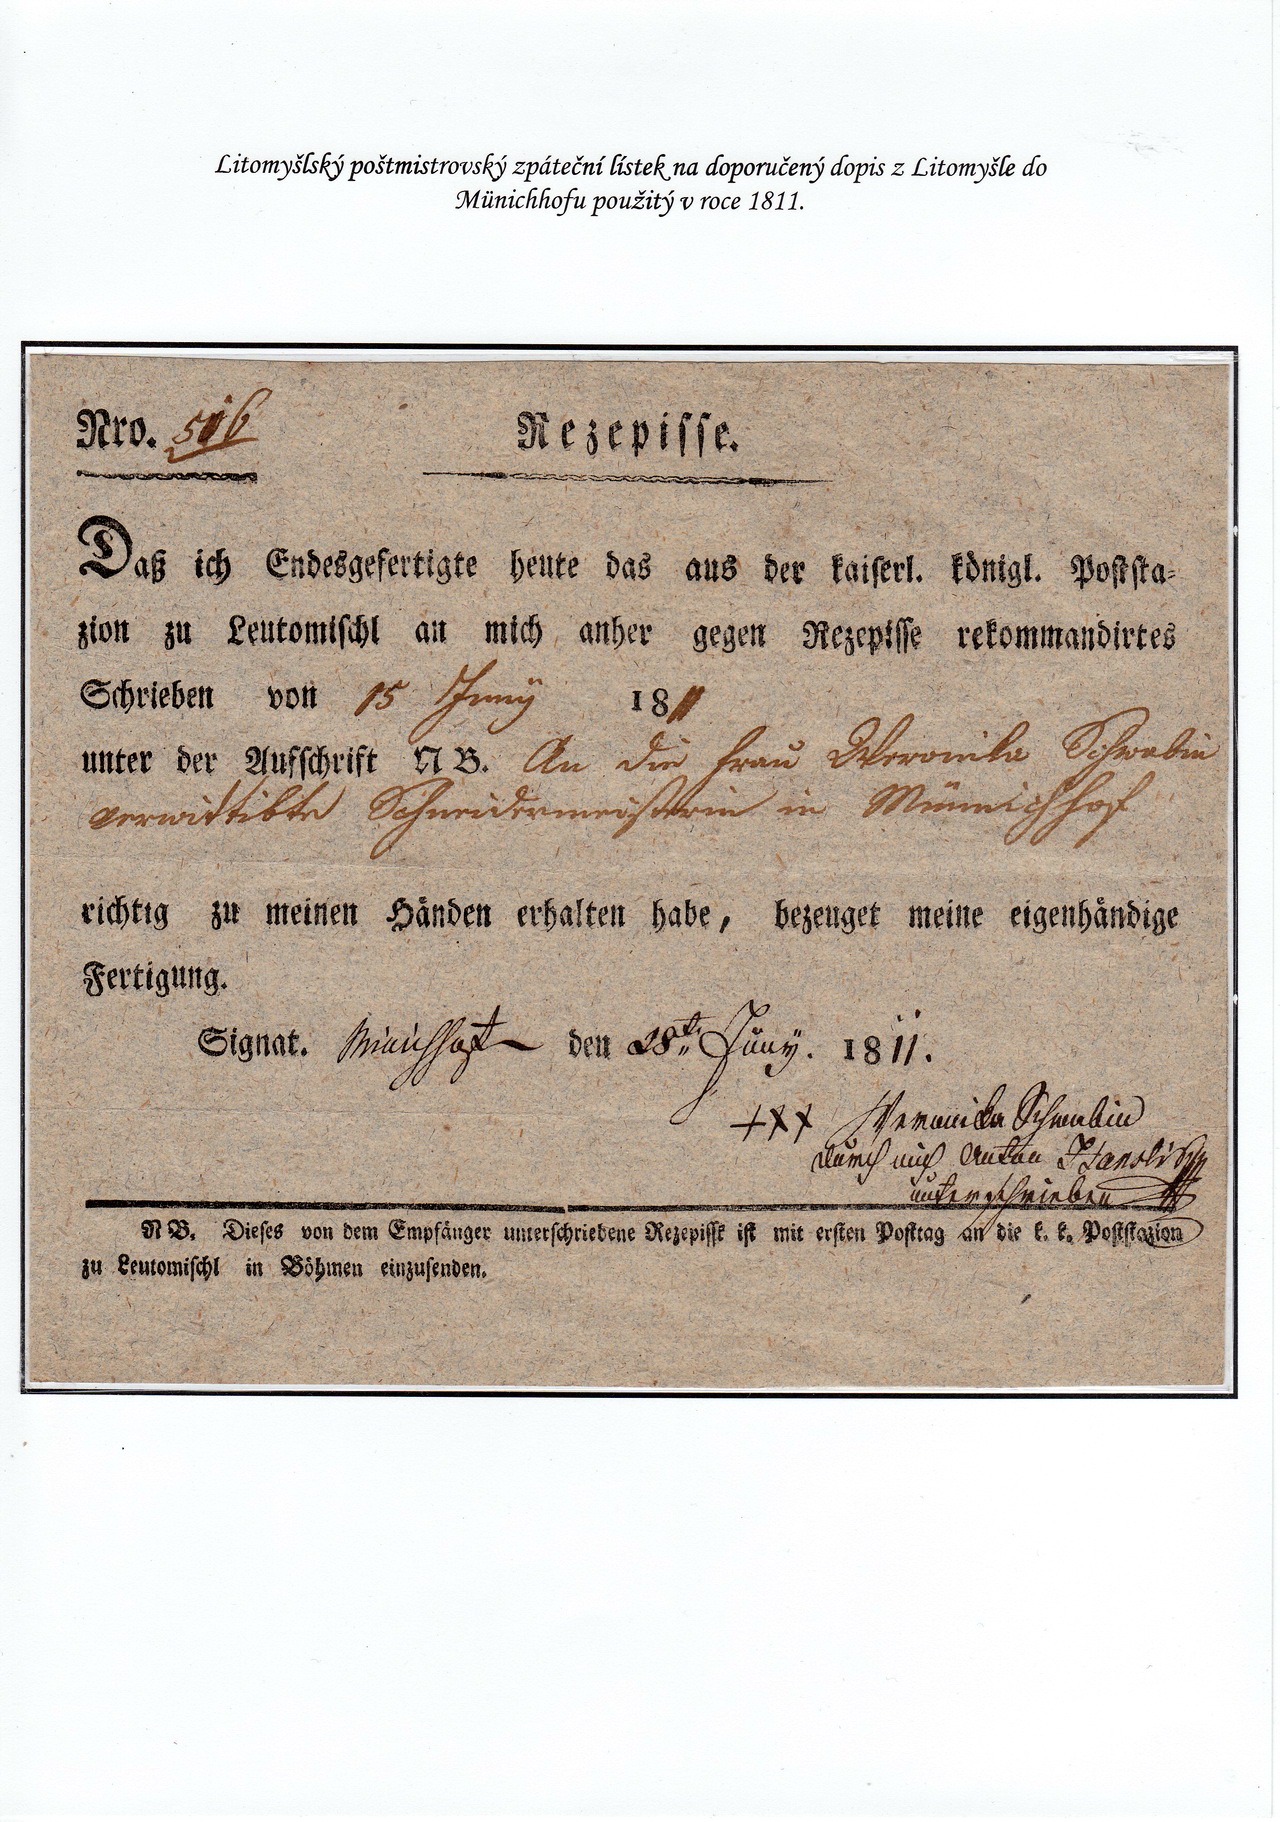 Litomyšlský poštmistrovský zpáteční lístek na doporučený dopis z Litomyšle do
Münichhofu použitý v roce 1811.
Nro. 516
Rezepisse.
Daß ich Endesgefertigte heute das aus der kaiserl. königl. Poststa-
zion zu Leutomischl an mich anher gegen Rezepisse rekommandirtes
Schrieben von 15 Juny 1811
unter der Aufschrift NB. An die Frau Weronika Schwabin
verwittibte Schneidermeisterin in Münnichhof
richtig zu meinen Händen erhalten habe, bezeuget meine eigenhändige
Fertigung.
Signat. den 28t. Juny. 1811.
+xx Weronika Schwabin
durch mich Anton
unterschrieben
NB. Dieses von dem Empfänger unterschriebene Rezepisse ist mit ersten Posttag an die k. k. Poststazion
zu Leutomischl in Böhmen einzusenden.